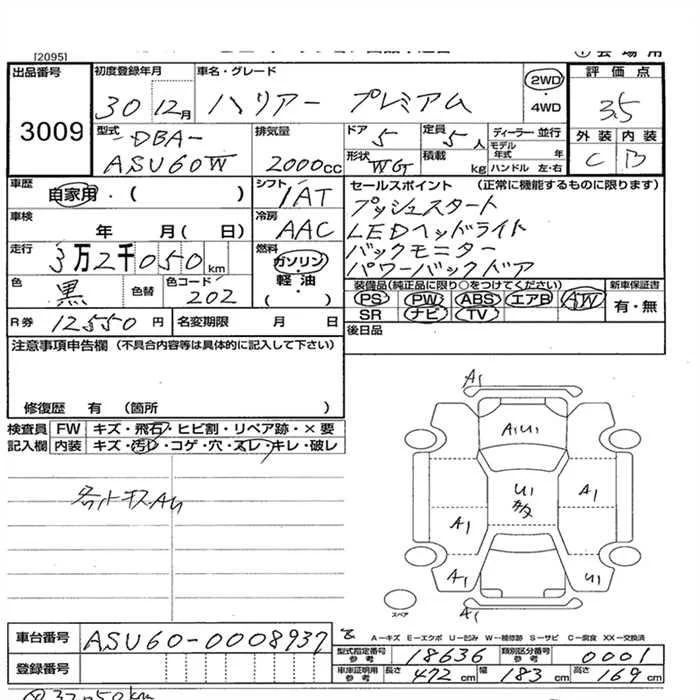 [2095]
出品番号 初度登録年月 車名・グレード 2WD 評価点
3009 30 12月 ハリアー プレミアム ・4WD 3.5
型式 排気量 ドア 定員 ディーラー・並行 外装 内装
DBA- 5 5人 モデル年式 年 C B
ASU60W 2000cc 形状 WGT 積載 kg ハンドル 左・右
車歴 自家用・( ) シフト IAT セールスポイント (正常に機能するものに限ります)
車検 年 月( 日) 冷房 AAC プッシュスタート
LEDヘッドライト
走行 3万2千050km 燃料 ガソリン・ バックモニター
軽油・ パワーバックドア
色 黒 色替 色コード 202 ( )
装備品(純正品に限り○をつけてください) 新車保証書
PS PW ABS エアB AW 有・無
SR ナビ TV
R券 12550円 名変期限 月 日 後日品
注意事項申告欄 (不具合内容等は具体的に記入して下さい)
修復歴 有 (箇所 )
検査員 FW キズ・飛石・ヒビ割・リペア跡・×要
記入欄 内装 キズ・汚れ・コゲ・穴・スレ・キレ・破レ
A1
A1U1
U1
A1
A1
A1
U1
スペア
A1
A-キズ E-エクボ U-凹み W-補修跡 S-サビ C-腐食 XX-交換済
車台番号 ASU60-0008937
型式指定番号 参考 18636 類別区分番号 参考 0001
登録番号
車庫証明用 参考 長さ 472cm 幅 183cm 高さ 169cm